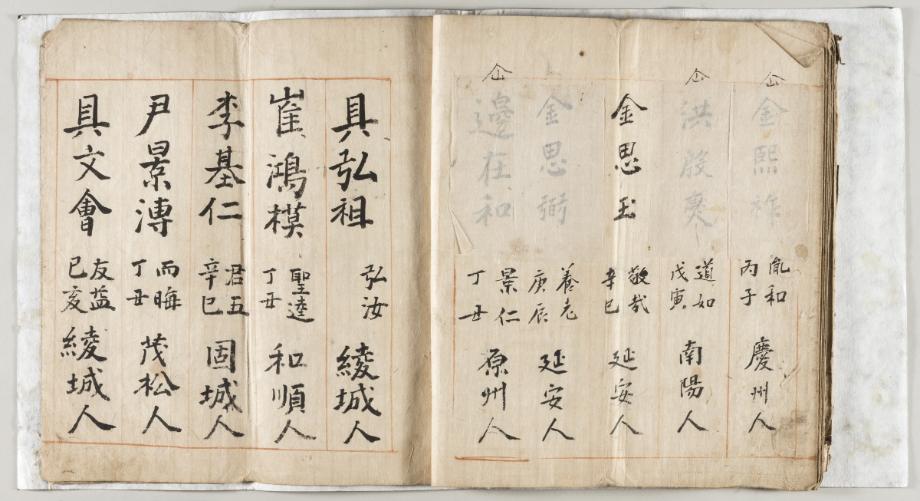 仚 金熙祚 胤和 丙子 慶州人
仚 洪啟奭 道如 戊寅 南陽人
金思玉 敬哉 辛巳 延安人
金思弼 養元 庚辰 延安人
仚 邊在和 景仁 丁丑 原州人
具弘祖 弘汝 綾城人
崔鴻模 聖逵 丁丑 和順人
李基仁 君五 辛巳 固城人
尹景溥 而晦 丁丑 茂松人
具文會 友益 已亥 綾城人